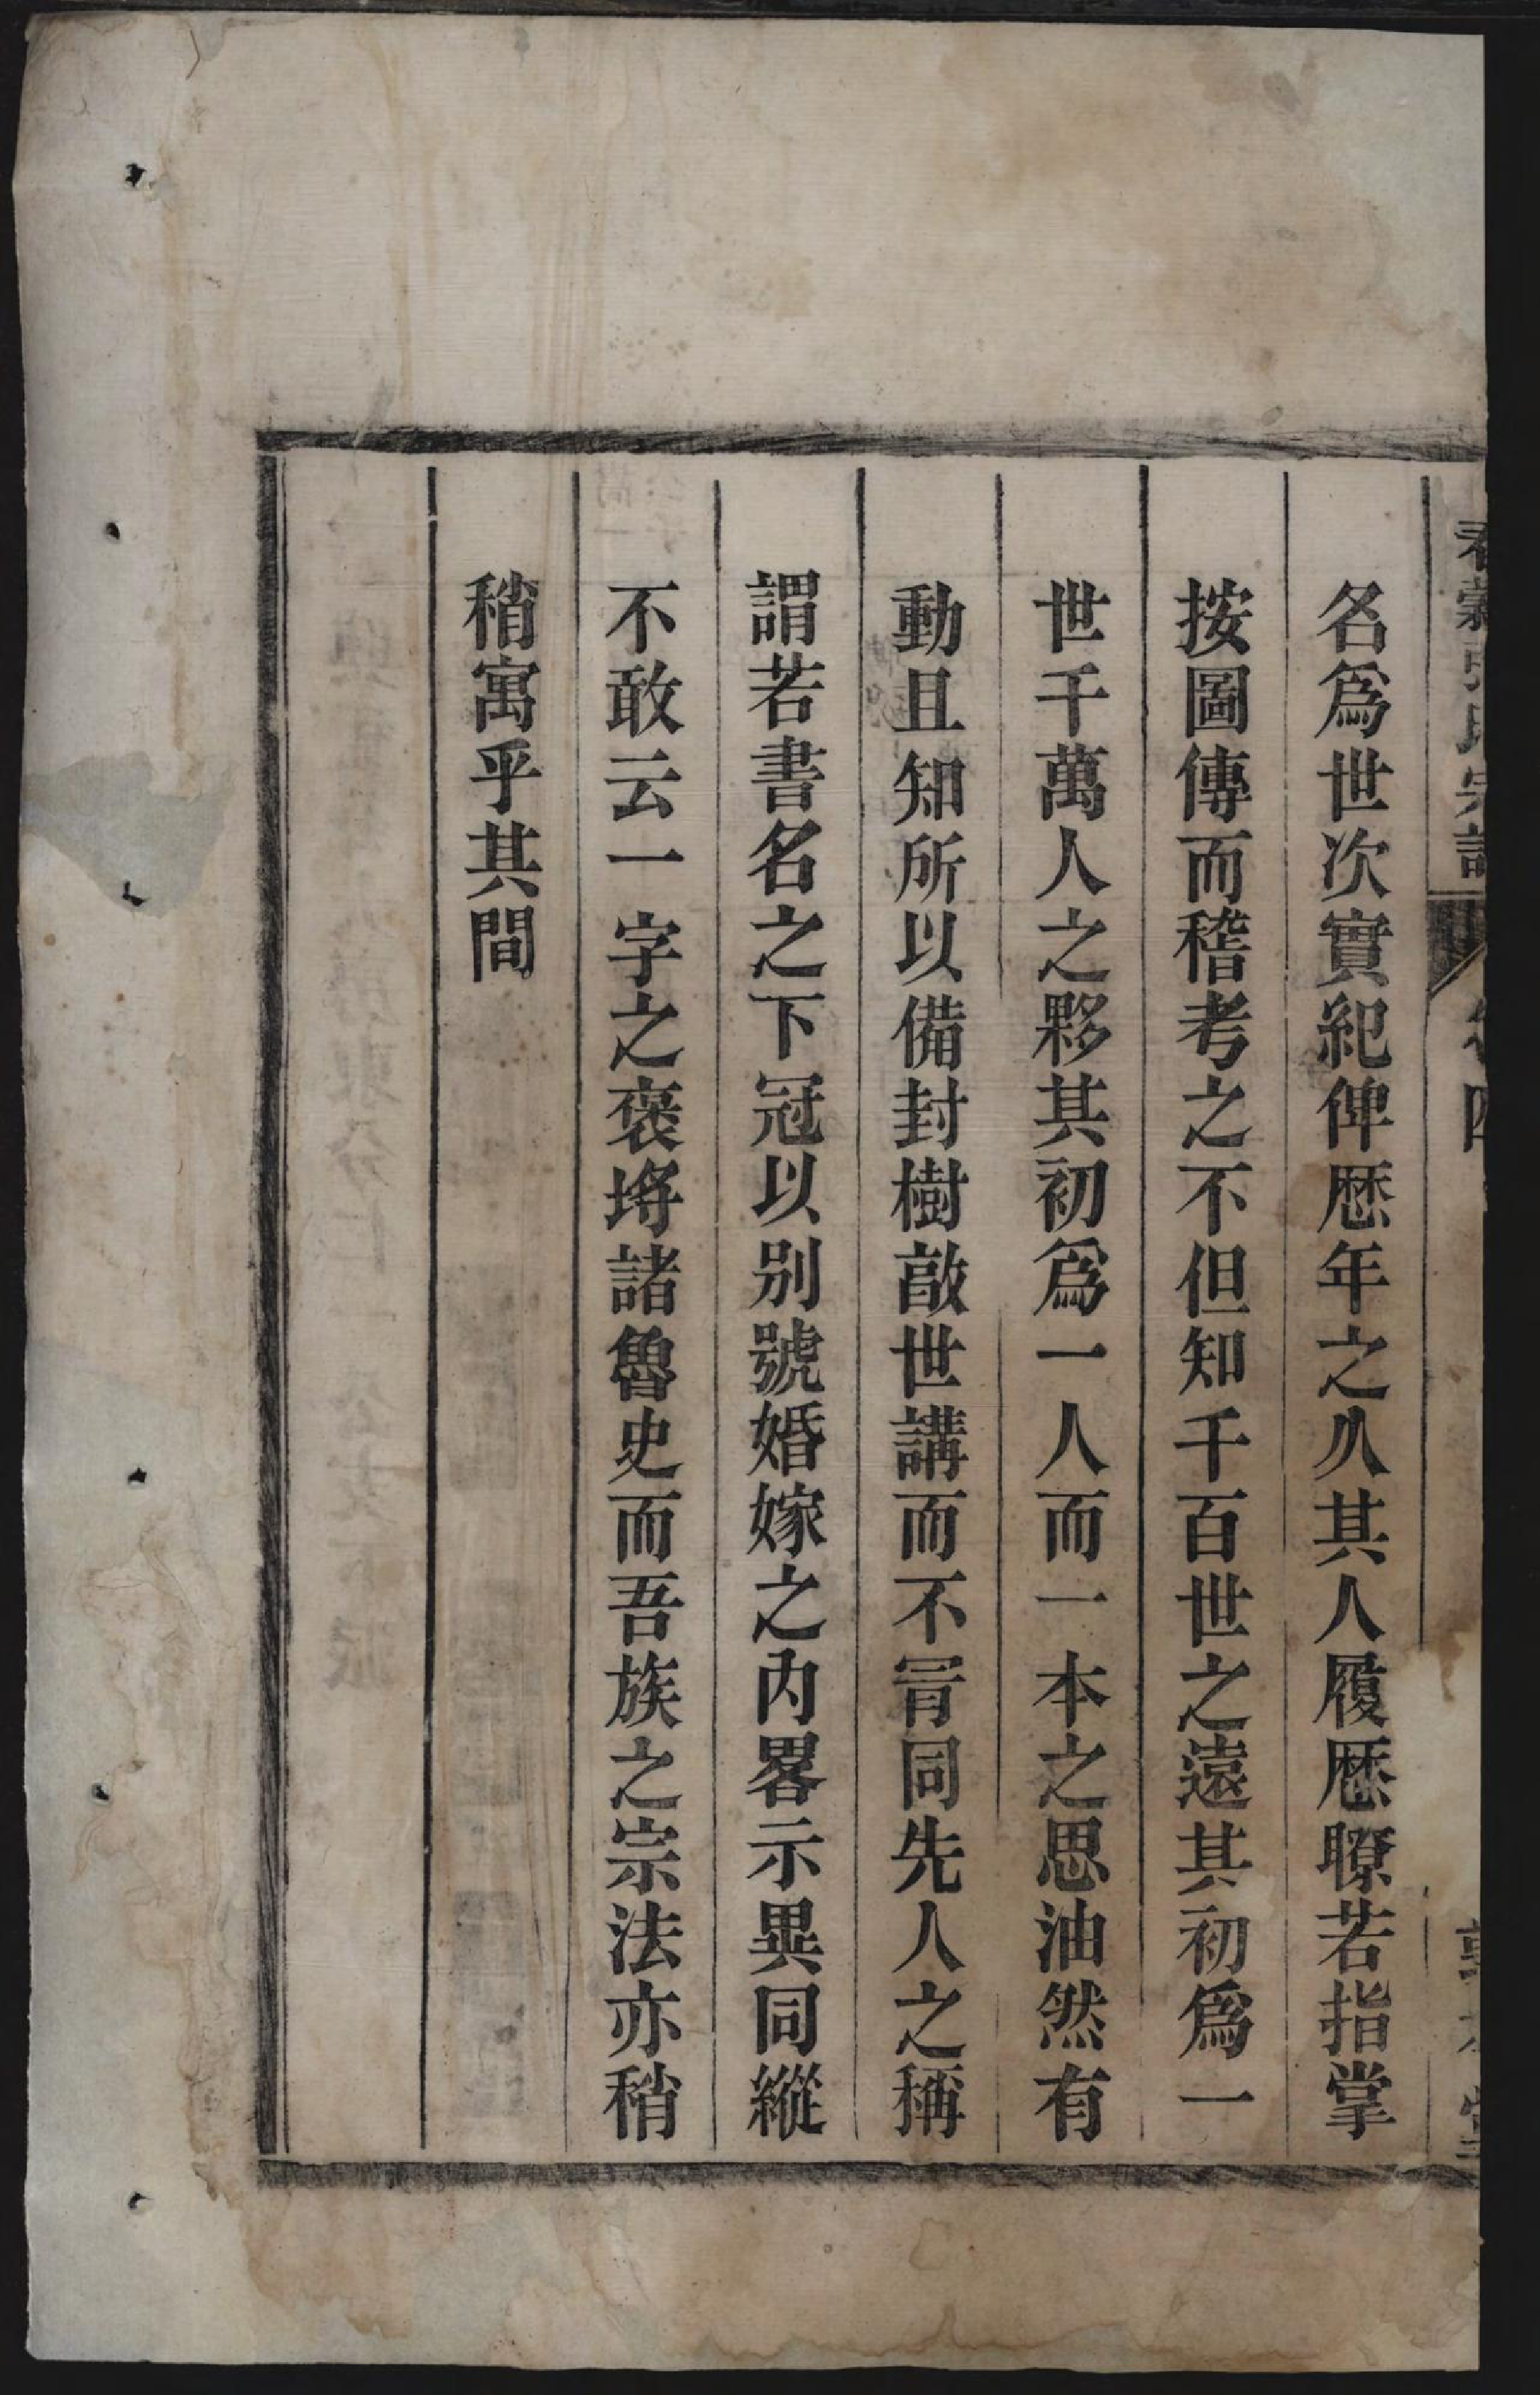 名爲世次實紀俾歷年之久其人履歷瞭若指掌
按圖傳而稽考之不但知千百世之遠其初爲一
世千萬人之夥其初爲一人而一本之思油然有
動且知所以備封樹敵世講而不胥同先人之稱
謂若書名之下冠以别號婚嫁之內畧示異同縱
不敢云一字之褒將諸魯史而吾族之宗法亦稍
稍寓乎其間